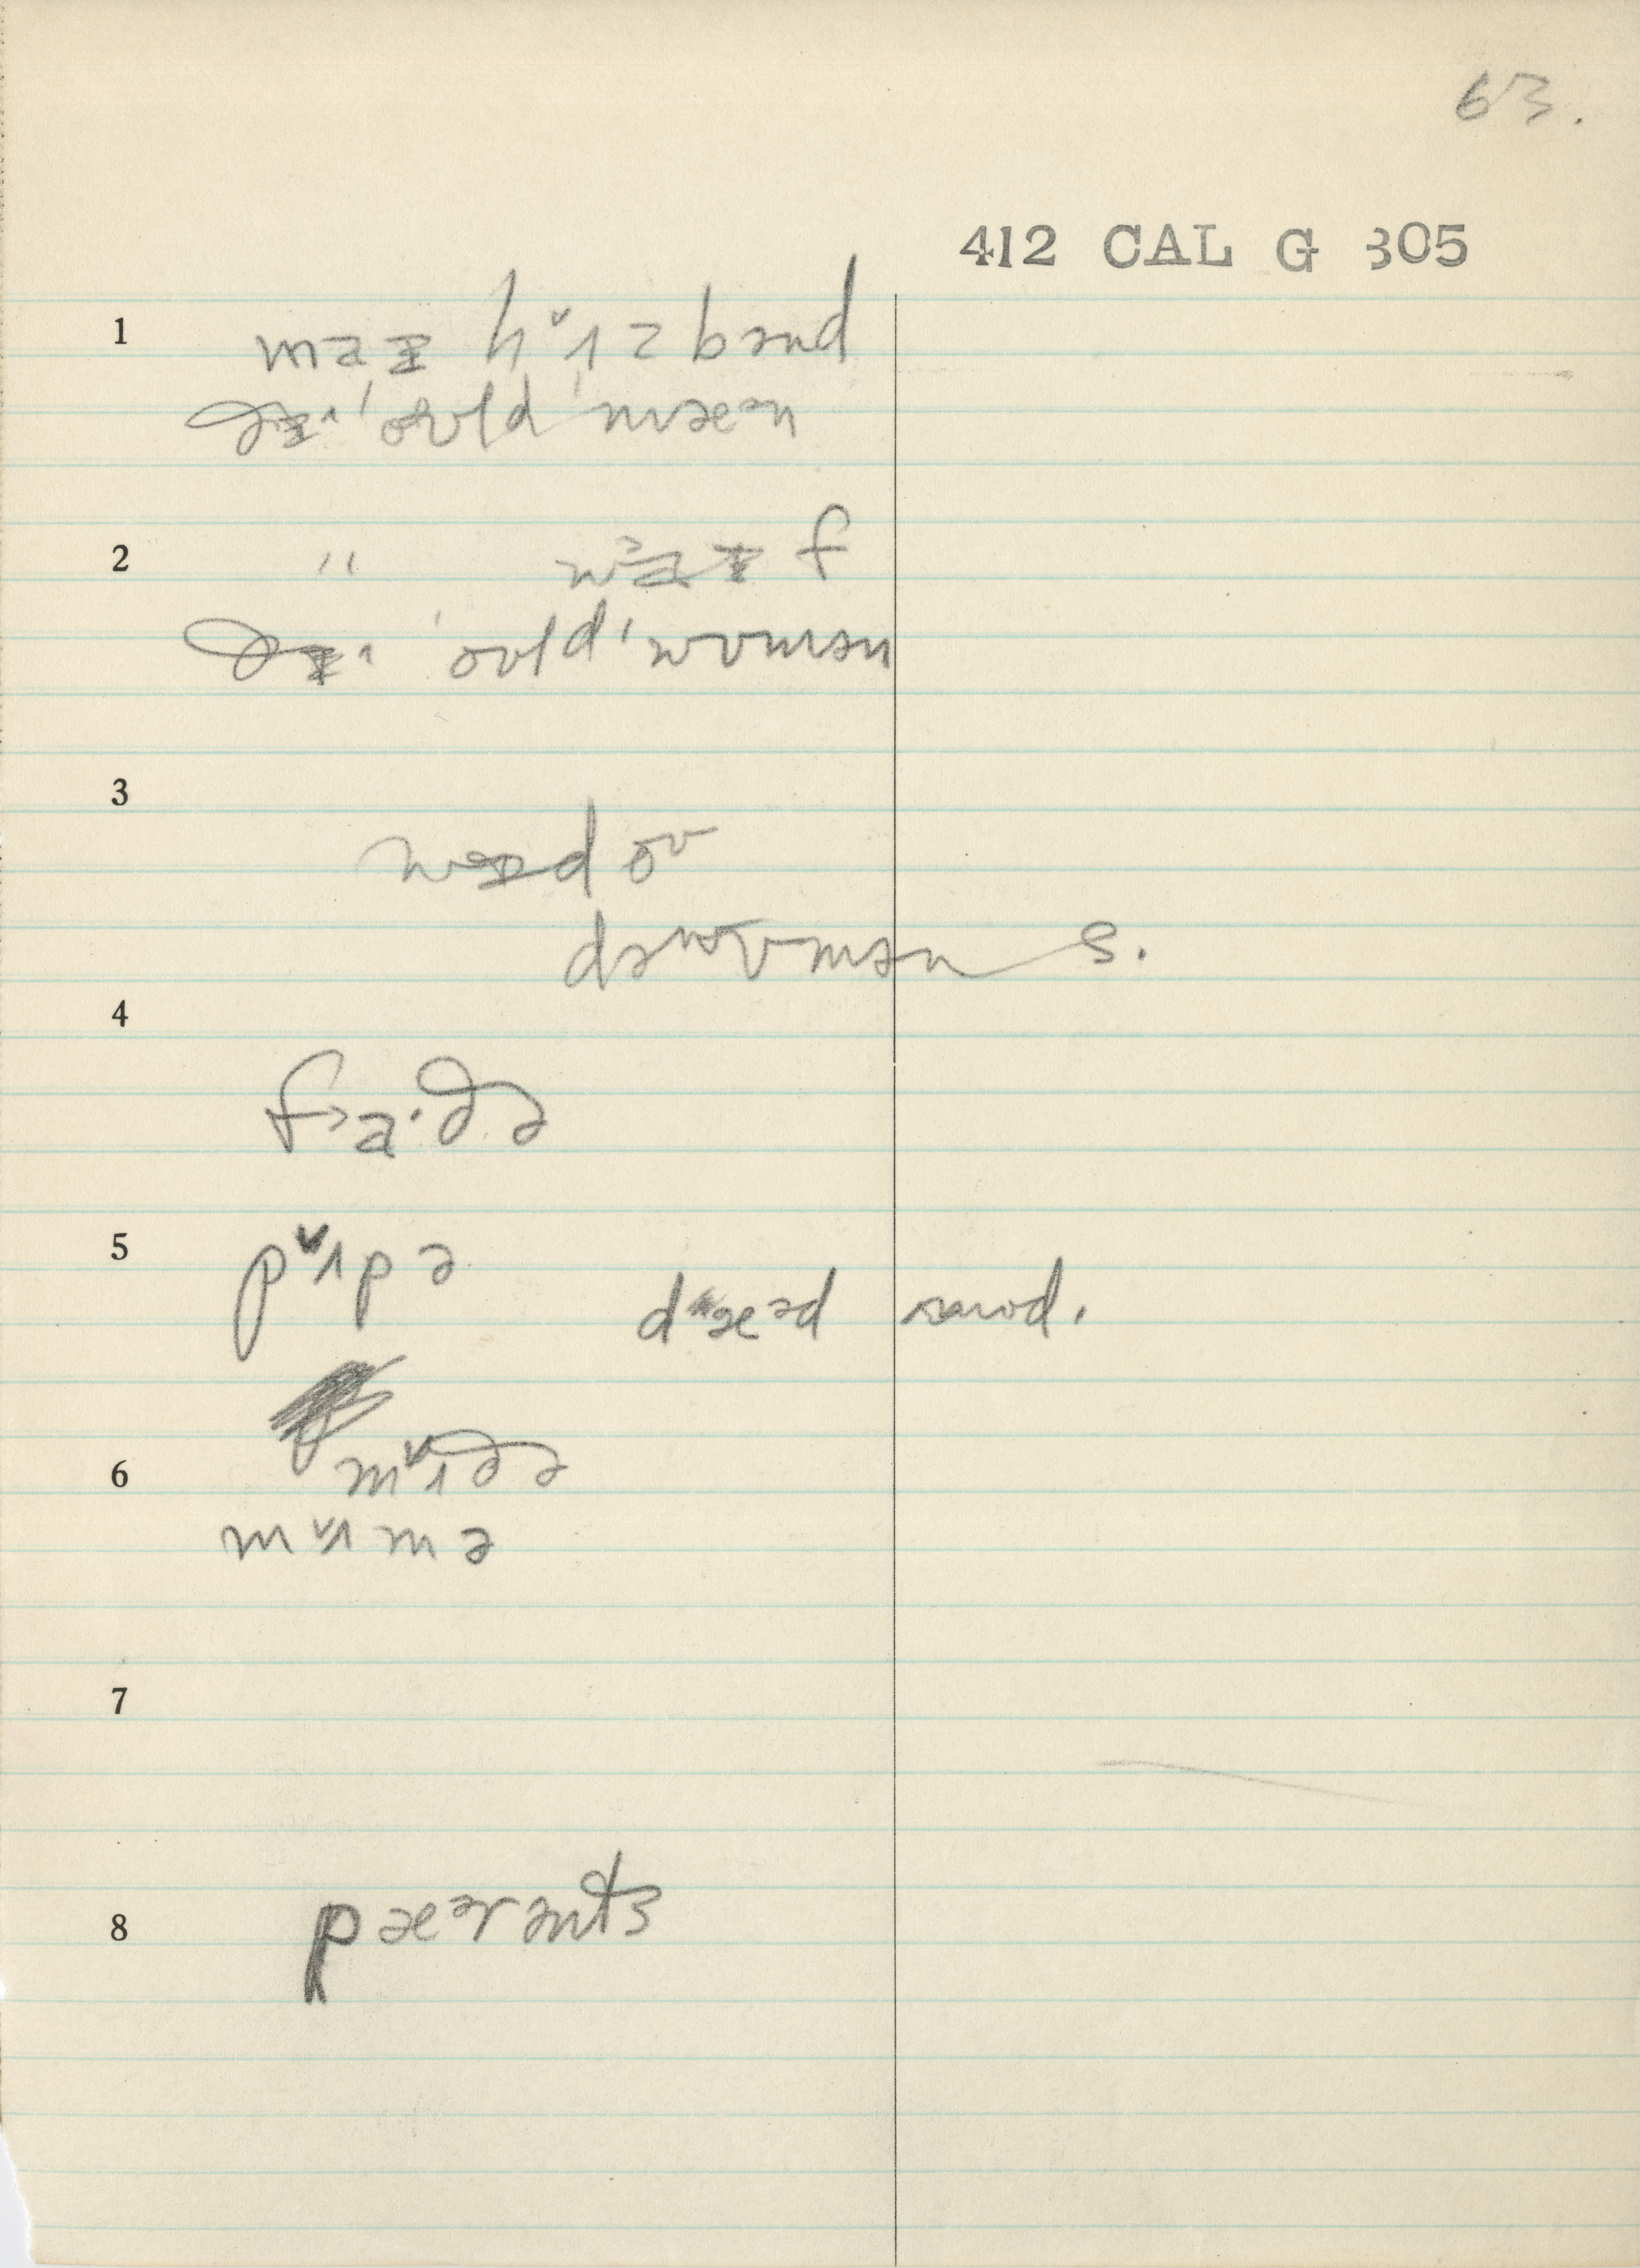 63.
412 CAL G 305
1 maɪ hʌzbənd
ðɪ 'oʊld 'mæən
2 " waɪf
ðɪ 'oʊld 'wʊmən
3 
dəwʊmən s.
4 fa·ðə
5 pʌpə
dæəd
6 mʌðə
mʌmə
7
8 pæərənts